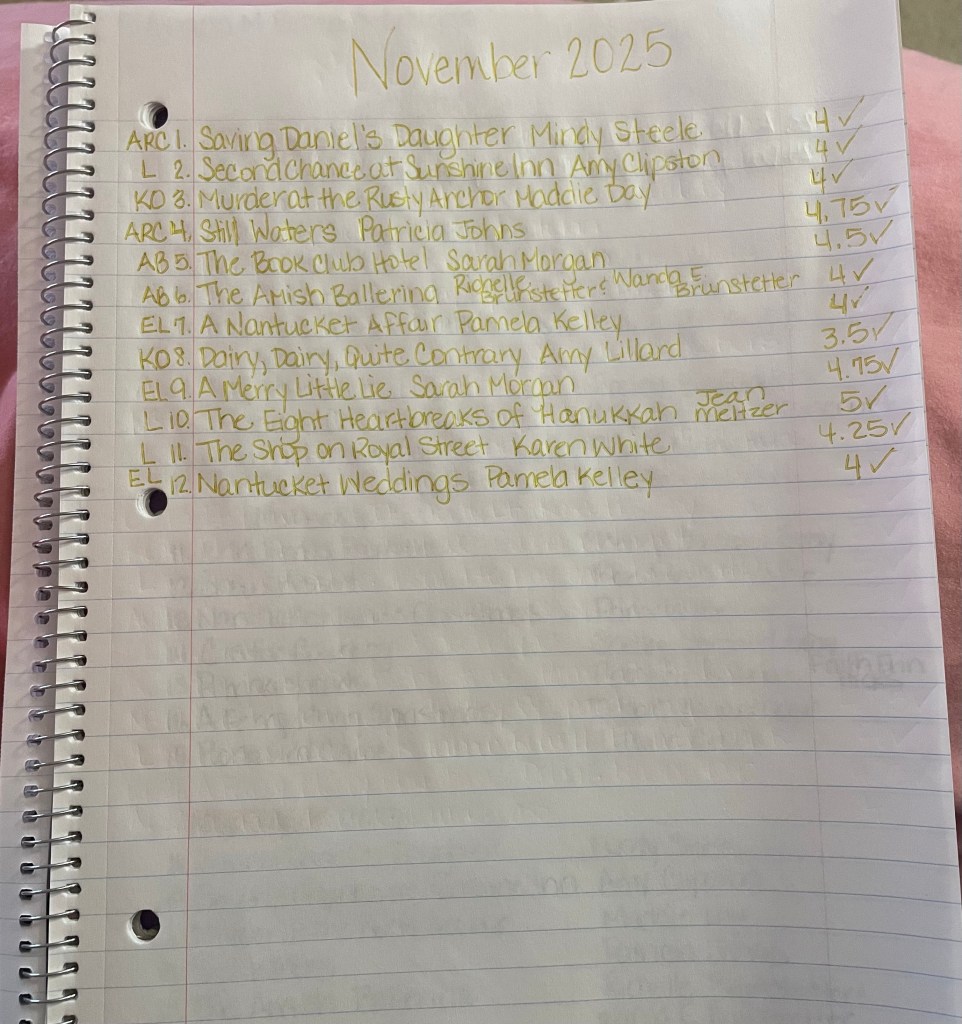 November 2025
ARC 1. Saving Daniel's Daughter Mindy Steele 4 ✓
L 2. Second Chance at Sunshine Inn Amy Clipston 4 ✓
KO 3. Murder at the Rusty Anchor Maddie Day 4 ✓
ARC 4. Still Waters Patricia Johns 4.75 ✓
AB 5. The Book Club Hotel Sarah Morgan 4.5 ✓
AB 6. The Amish Ballerina Richelle Brunstetter & Wanda E. Brunstetter 4 ✓
EL 7. A Nantucket Affair Pamela Kelley 4 ✓
KO 8. Dairy, Dairy, Quite Contrary Amy Lillard 3.5 ✓
EL 9. A Merry Little Lie Sarah Morgan 4.75 ✓
L 10. The Eight Heartbreaks of Hanukkah Jean Meltzer 5 ✓
L 11. The Shop on Royal Street Karen White 4.25 ✓
EL 12. Nantucket Weddings Pamela Kelley 4 ✓